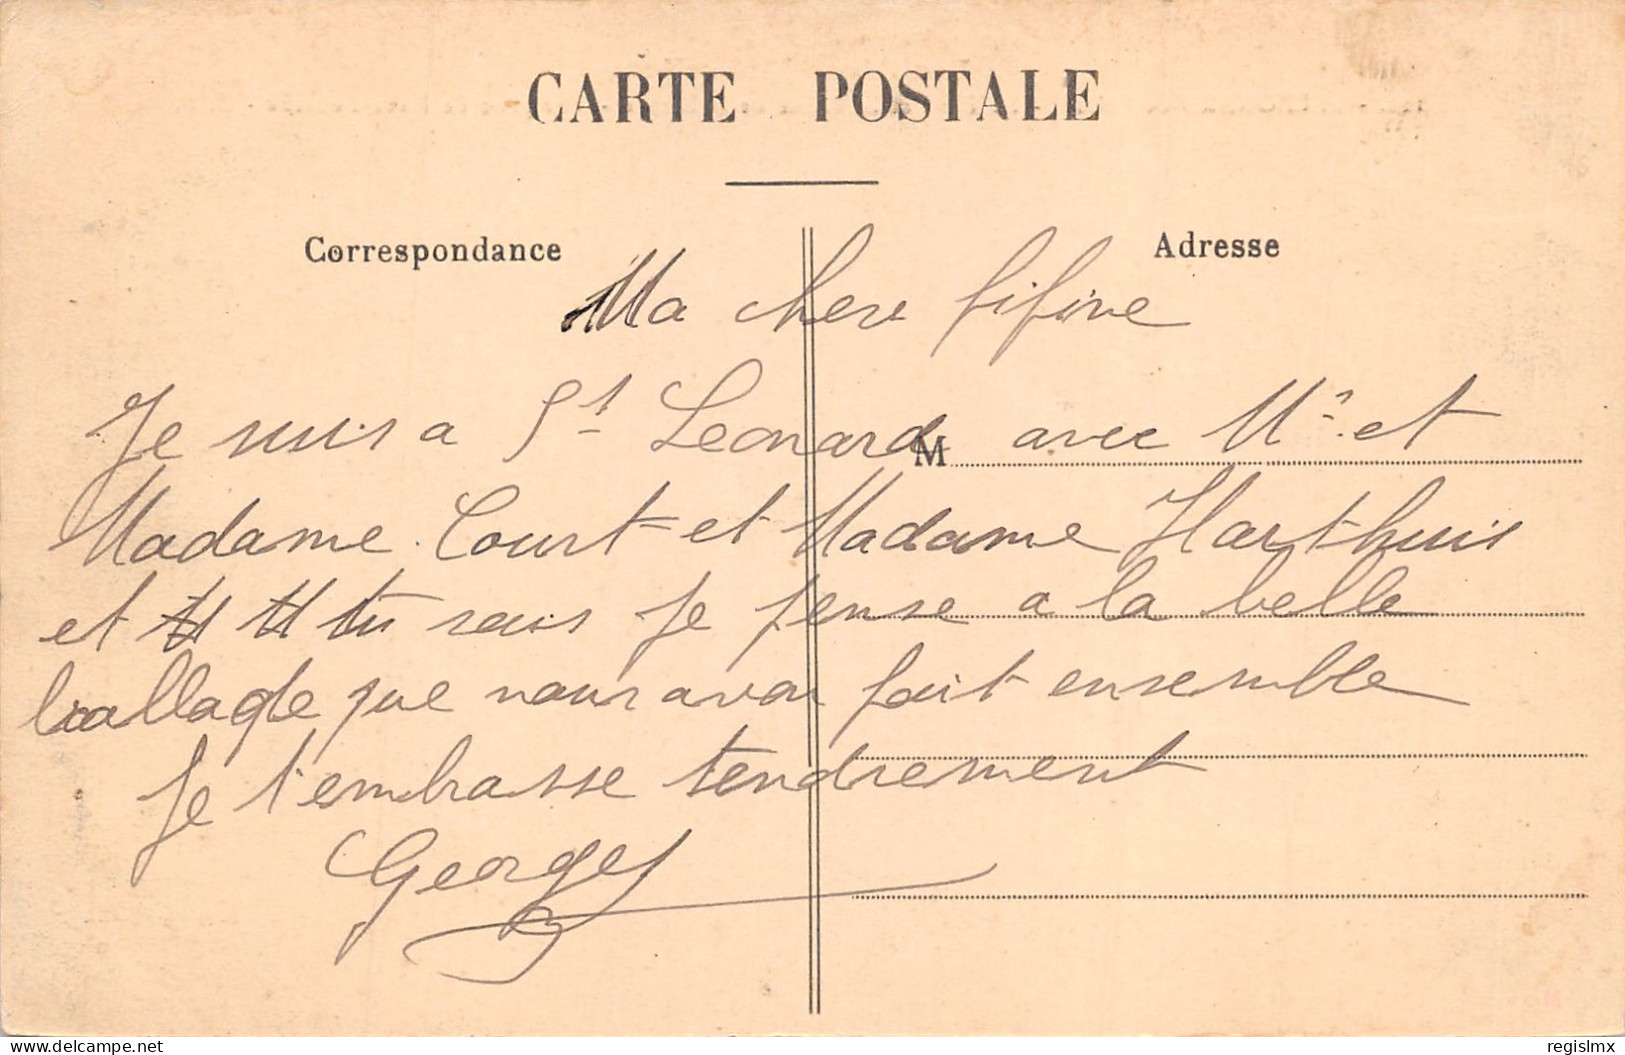 CARTE POSTALE
Correspondance
Adresse
Ma chere fifine
Je suis a St Leonard avec Mr et
M
Madame Court et Madame Harthuis
et tu sais Je pense a la belle
ballade que nous avon fait ensemble
Je t'embrasse tendrement
Georges
delcampe.net
regislmx